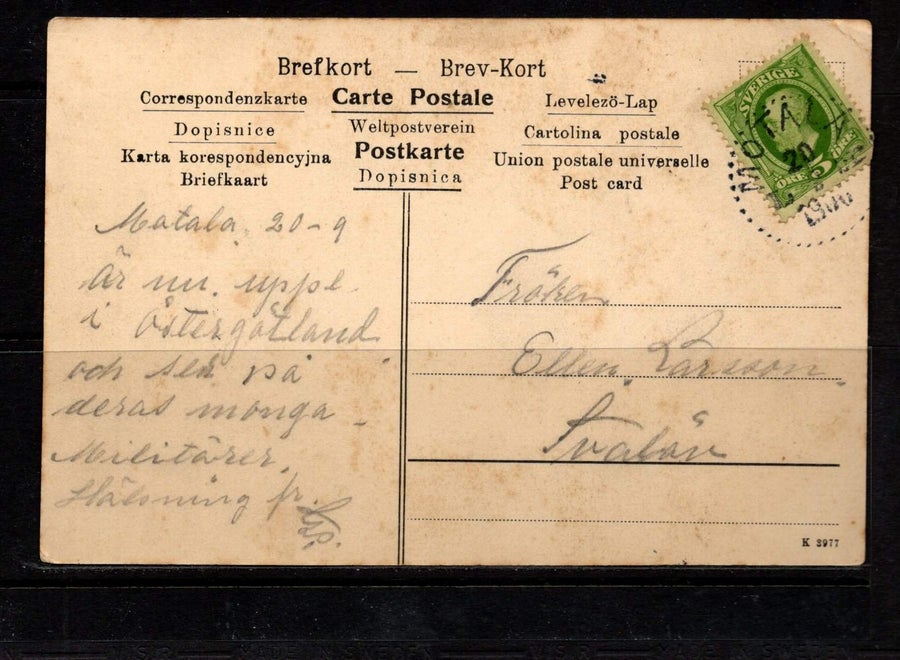 Brefkort — Brev-Kort
Correspondenzkarte Carte Postale Levelezö-Lap
Dopisnice Weltpostverein Cartolina postale
Karta korespondencyjna Postkarte Union postale universelle
Briefkaart Dopisnica Post card
SVERIGE
5 ÖRE ÖRE
MOTALA
20
Motala, 20-9
Är nu. uppe
i Östergötland
och ser på
deras monga
Militärer.
Hälsning fr.
Fröken
Ellen. Larsson.
Svalöv
K 2977